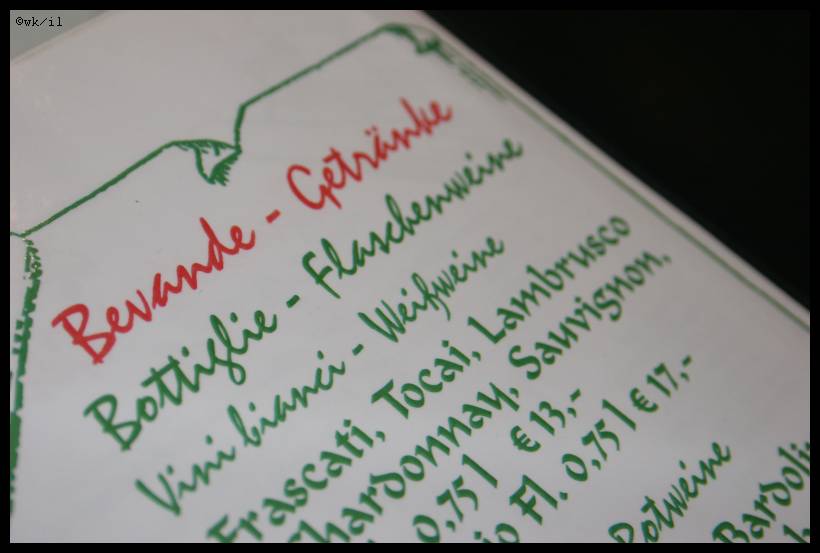 ©wk/il
Bevande - Getränke
Bottiglie - Flaschenweine
Vini bianci - Weißweine
Frascati, Tocai, Lambrusco
Chardonnay, Sauvignon.
0,75 l € 13,-
Fl. 0,75 l € 17,-
Rotweine